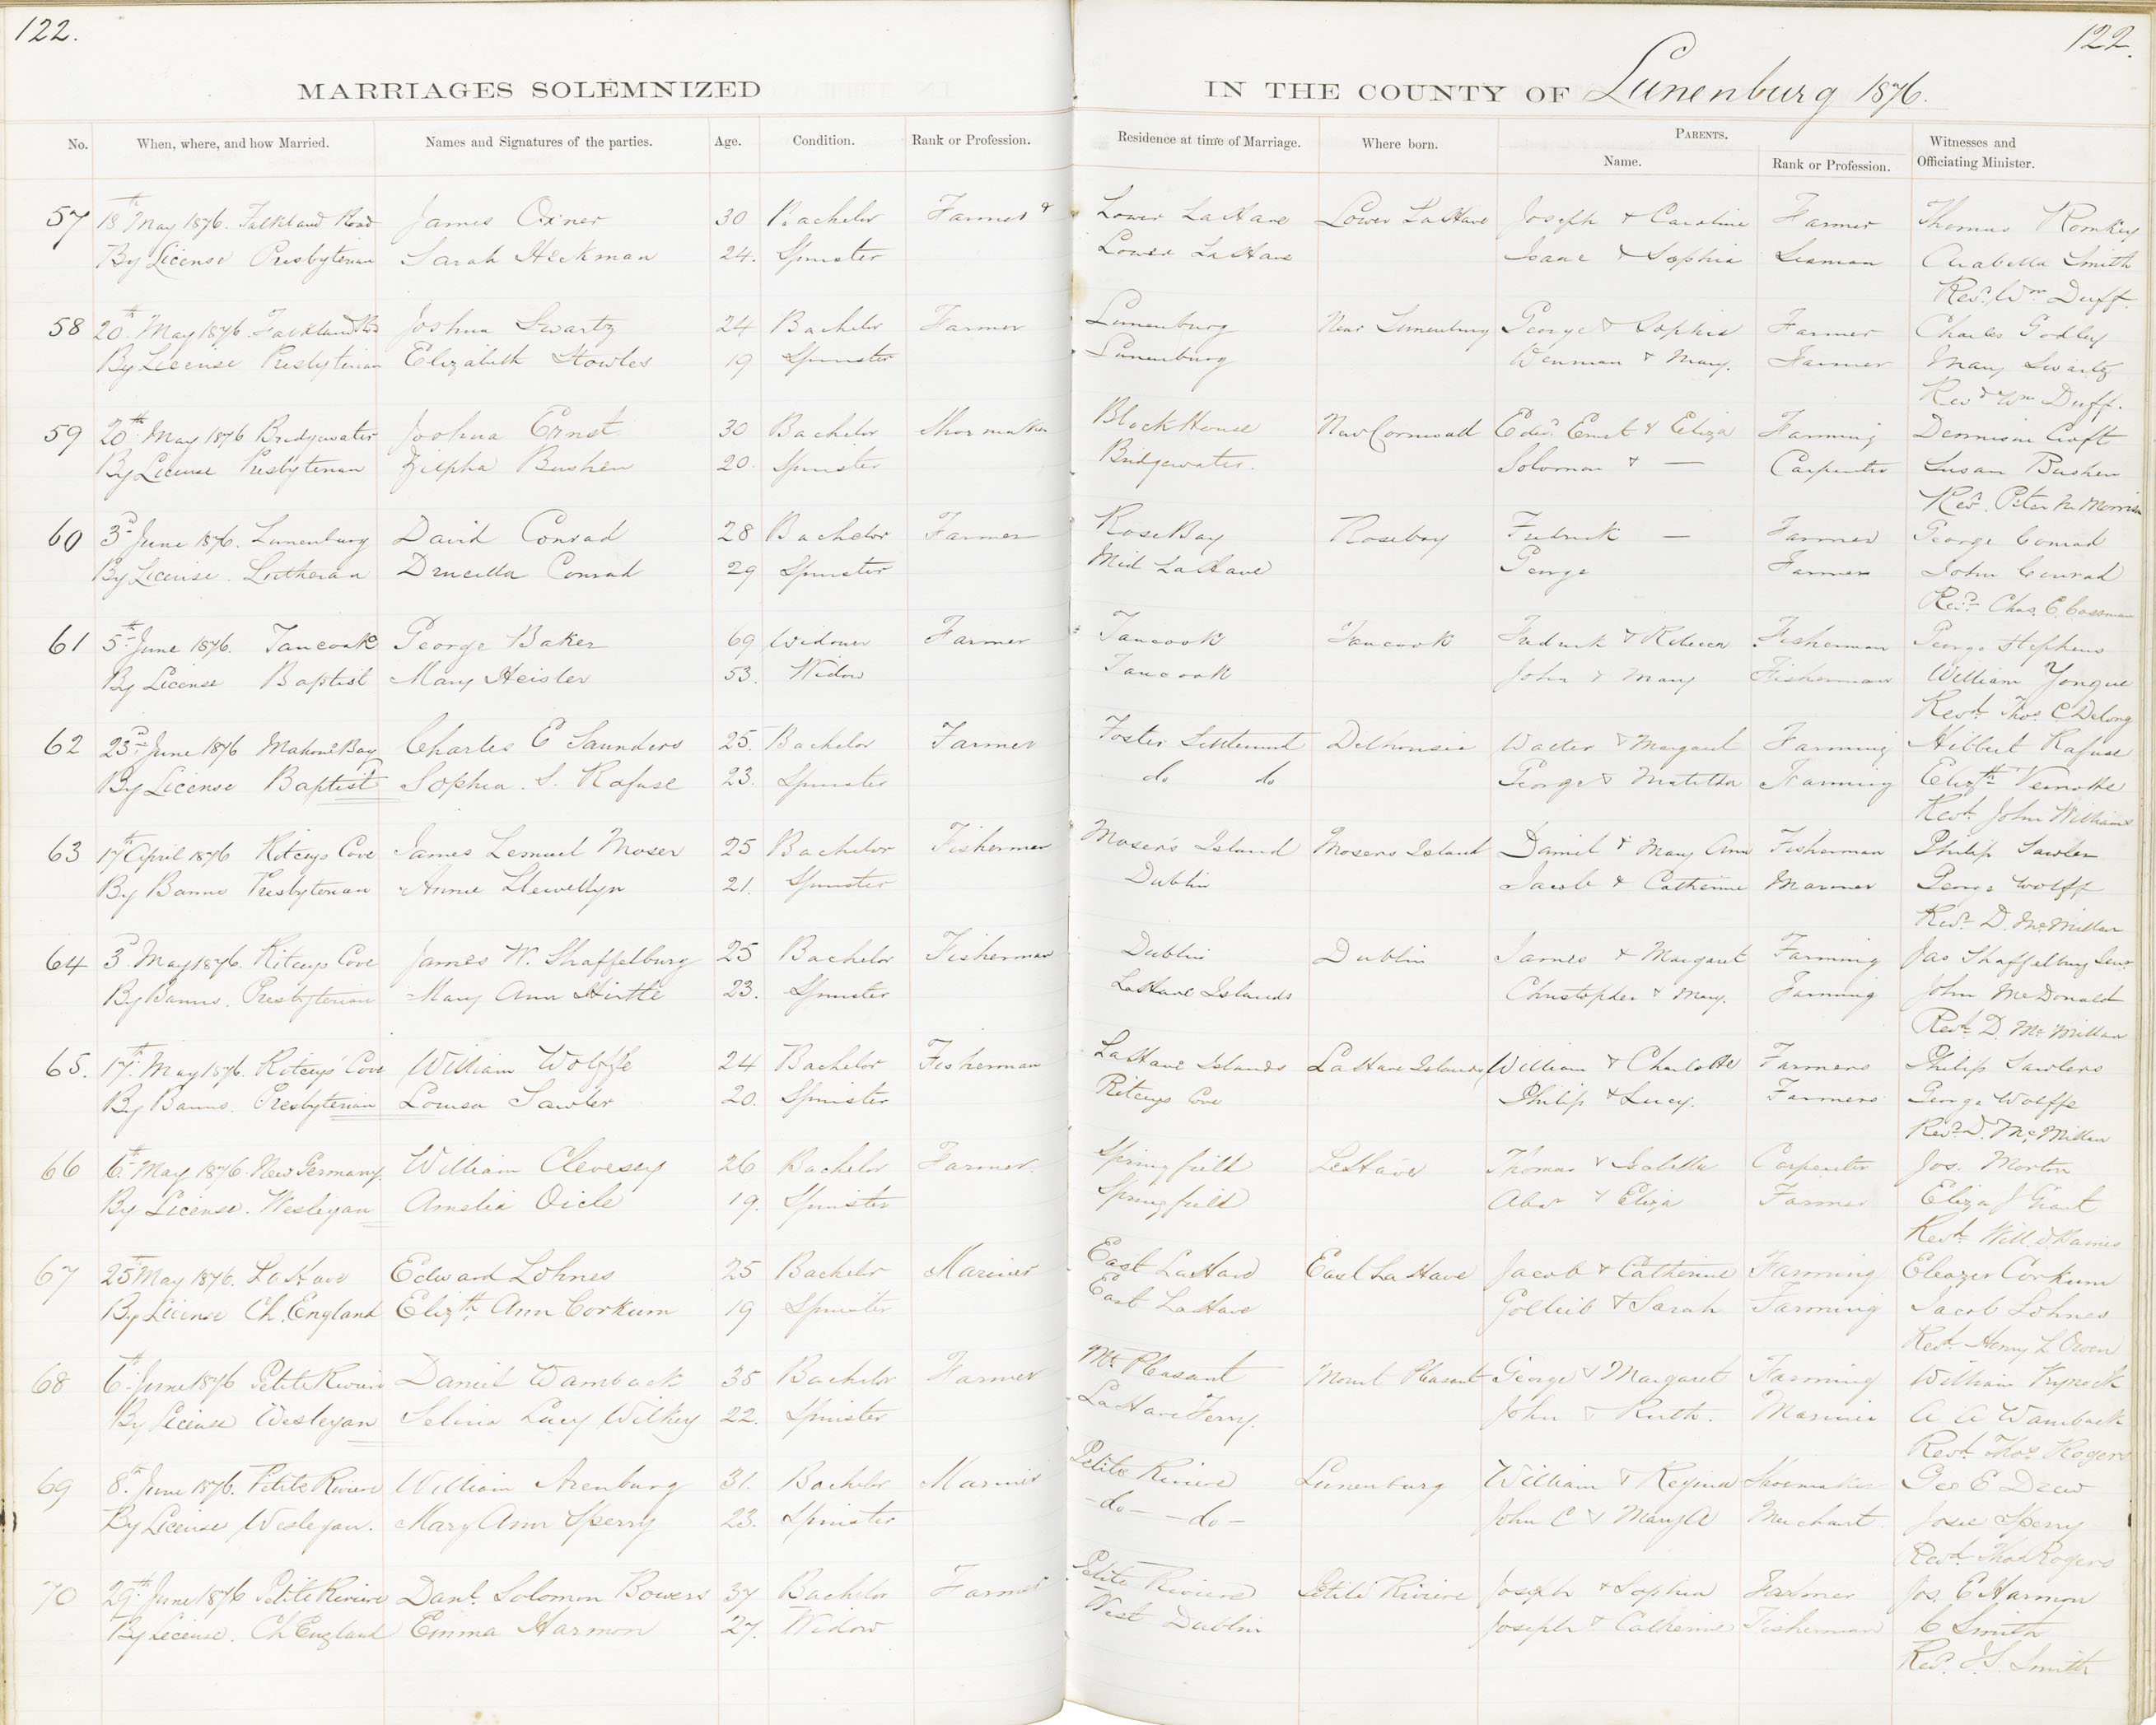 122.
122.
MARRIAGES SOLEMNIZED IN THE COUNTY OF Lunenburg 1876.
No. When, where, and how Married. Names and Signatures of the parties. Age. Condition. Rank or Profession. Residence at time of Marriage. Where born. PARENTS. Name. Rank or Profession. Witnesses and Officiating Minister.
57 18th May 1876. Falkland Road James Oxner 30 Bachelor Farmer Lower LaHave Lower LaHave Joseph & Caroline Farmer Thomas Romkey
By License Presbyterian Sarah Heckman 24. Spinster Lower LaHave Isaac & Sophia Seaman Arabella Smith
Revd. Wm Duff.
58 20th May 1876. Falkland Rd Joshua Swartz 24 Bachelor Farmer Lunenburg Near Lunenburg George & Sophia Farmer Charles Godley
By License Presbyterian Elizabeth Knowles 19 Spinster Lunenburg Wenman & Mary. Farmer Mary Swartz
Revd Wm Duff.
59 20th May 1876 Bridgewater Joshua Ernst 30 Bachelor Shoemaker Block House New Cornwall Edwd. Ernst & Eliza Farming Dennison Croft
By License Presbyterian Zilpha Bushen 20. Spinster Bridgewater. Solomon & — Carpenter Susan Bushen
Revd. Peter M. Morrison
60 3d June 1876. Lunenburg David Conrad 28 Bachelor Farmer Rose Bay Rosebay Fredrick — Farmer George Conrad
By License. Lutheran Drucilla Conrad 29 Spinster Mid LaHave George Farmer John Conrad
Revd. Chas. E. Cossman
61 5th June 1876. Tancook George Baker 69 Widower Farmer Tancook Tancook Fredrick & Rebecca Fisherman George Stephens
By License Baptist Mary Heisler 53. Widow Tancook John & Mary Fisherman William Yongue
Revd. Thos. C Delong
62 23d June 1876 Mahone Bay Charles E Saunders 25. Bachelor Farmer Foster Settlement Dalhousie Walter & Margaret Farming Hibbert Rafuse
By License Baptist Sophia. S. Rafuse 23. Spinster do do George & Matilda Farming Elizth Veinotte
Revd. John Williams
63 17th April 1876 Ritceys Cove James Lemuel Moser 25 Bachelor Fisherman Moser's Island Mosers Island Daniel & Mary Ann Fisherman Philip Sawler
By Banns Presbyterian Annie Llewellyn 21. Spinster Dublin Jacob & Catherine Mariner George Wolff
Revd. D. McMillan
64 3d May 1876. Ritceys Cove James W. Shaffelburg 25 Bachelor Fisherman Dublin Dublin James & Margaret Farming Jas Shaffelburg Senr.
By Banns. Presbyterian Mary Ann Hirtle 23. Spinster LaHave Islands Christopher & Mary. Farming John McDonald
Revd. D. McMillan
65. 17th May 1876. Ritceys' Cove William Wolffe 24 Bachelor Fisherman LaHave Islands LaHave Islands William & Charlotte Farmers Philip Sawlers
By Banns. Presbyterian Louisa Sawler 20. Spinster Ritceys Cove Philip & Lucy. Farmers George Wolffe
Revd. D. McMillan
66 6th May 1876. New Germany. William Clevesey 26 Bachelor Farmer. Springfield LaHave Thomas & Isabella Carpenter Jos. Morton
By License. Wesleyan Amelia Oicle 19. Spinster Springfield & Eliza Farmer Eliza J
Revd. Will.
67 25th May 1876. LaHave Edward Lohnes 25 Bachelor Mariner East LaHave East LaHave Jacob & Catherine Farming Eleazer Corkum
By License Ch. England Elizth Ann Corkum 19 Spinster East LaHave Gotleib & Sarah Farming Jacob Lohnes
Revd. Henry L Owen
68 6th June 1876 Petite Riviere Daniel Wamback 35 Bachelor Farmer Mt. Pleasant Mount Pleasant George & Margaret Farming William Kynock
By License Wesleyan Selina Lucy Wilkey 22. Spinster LaHave Ferry. John & Ruth. Mariner A A Wamback
Revd. Thos Rogers
69 8th June 1876. Petite Riviere William Arenburg 31. Bachelor Mariner Petite Riviere Lunenburg William & Regina Shoemaker Geo E Drew
By License Wesleyan. Mary Ann Sperry 23. Spinster -do- -do- John C & Mary A Merchant Josie Sperry
Revd. Thos Rogers
70 29th June 1876 Petite Riviere Danl. Solomon Bowers 37 Bachelor Farmer Petite Riviere Petite Riviere Joseph & Sophia Farmer Jos. E Harmon
By License. Ch England Emma Harmon 27. Widow West Dublin Joseph & Catherine Fisherman C Smith
Revd. J. S. Smith